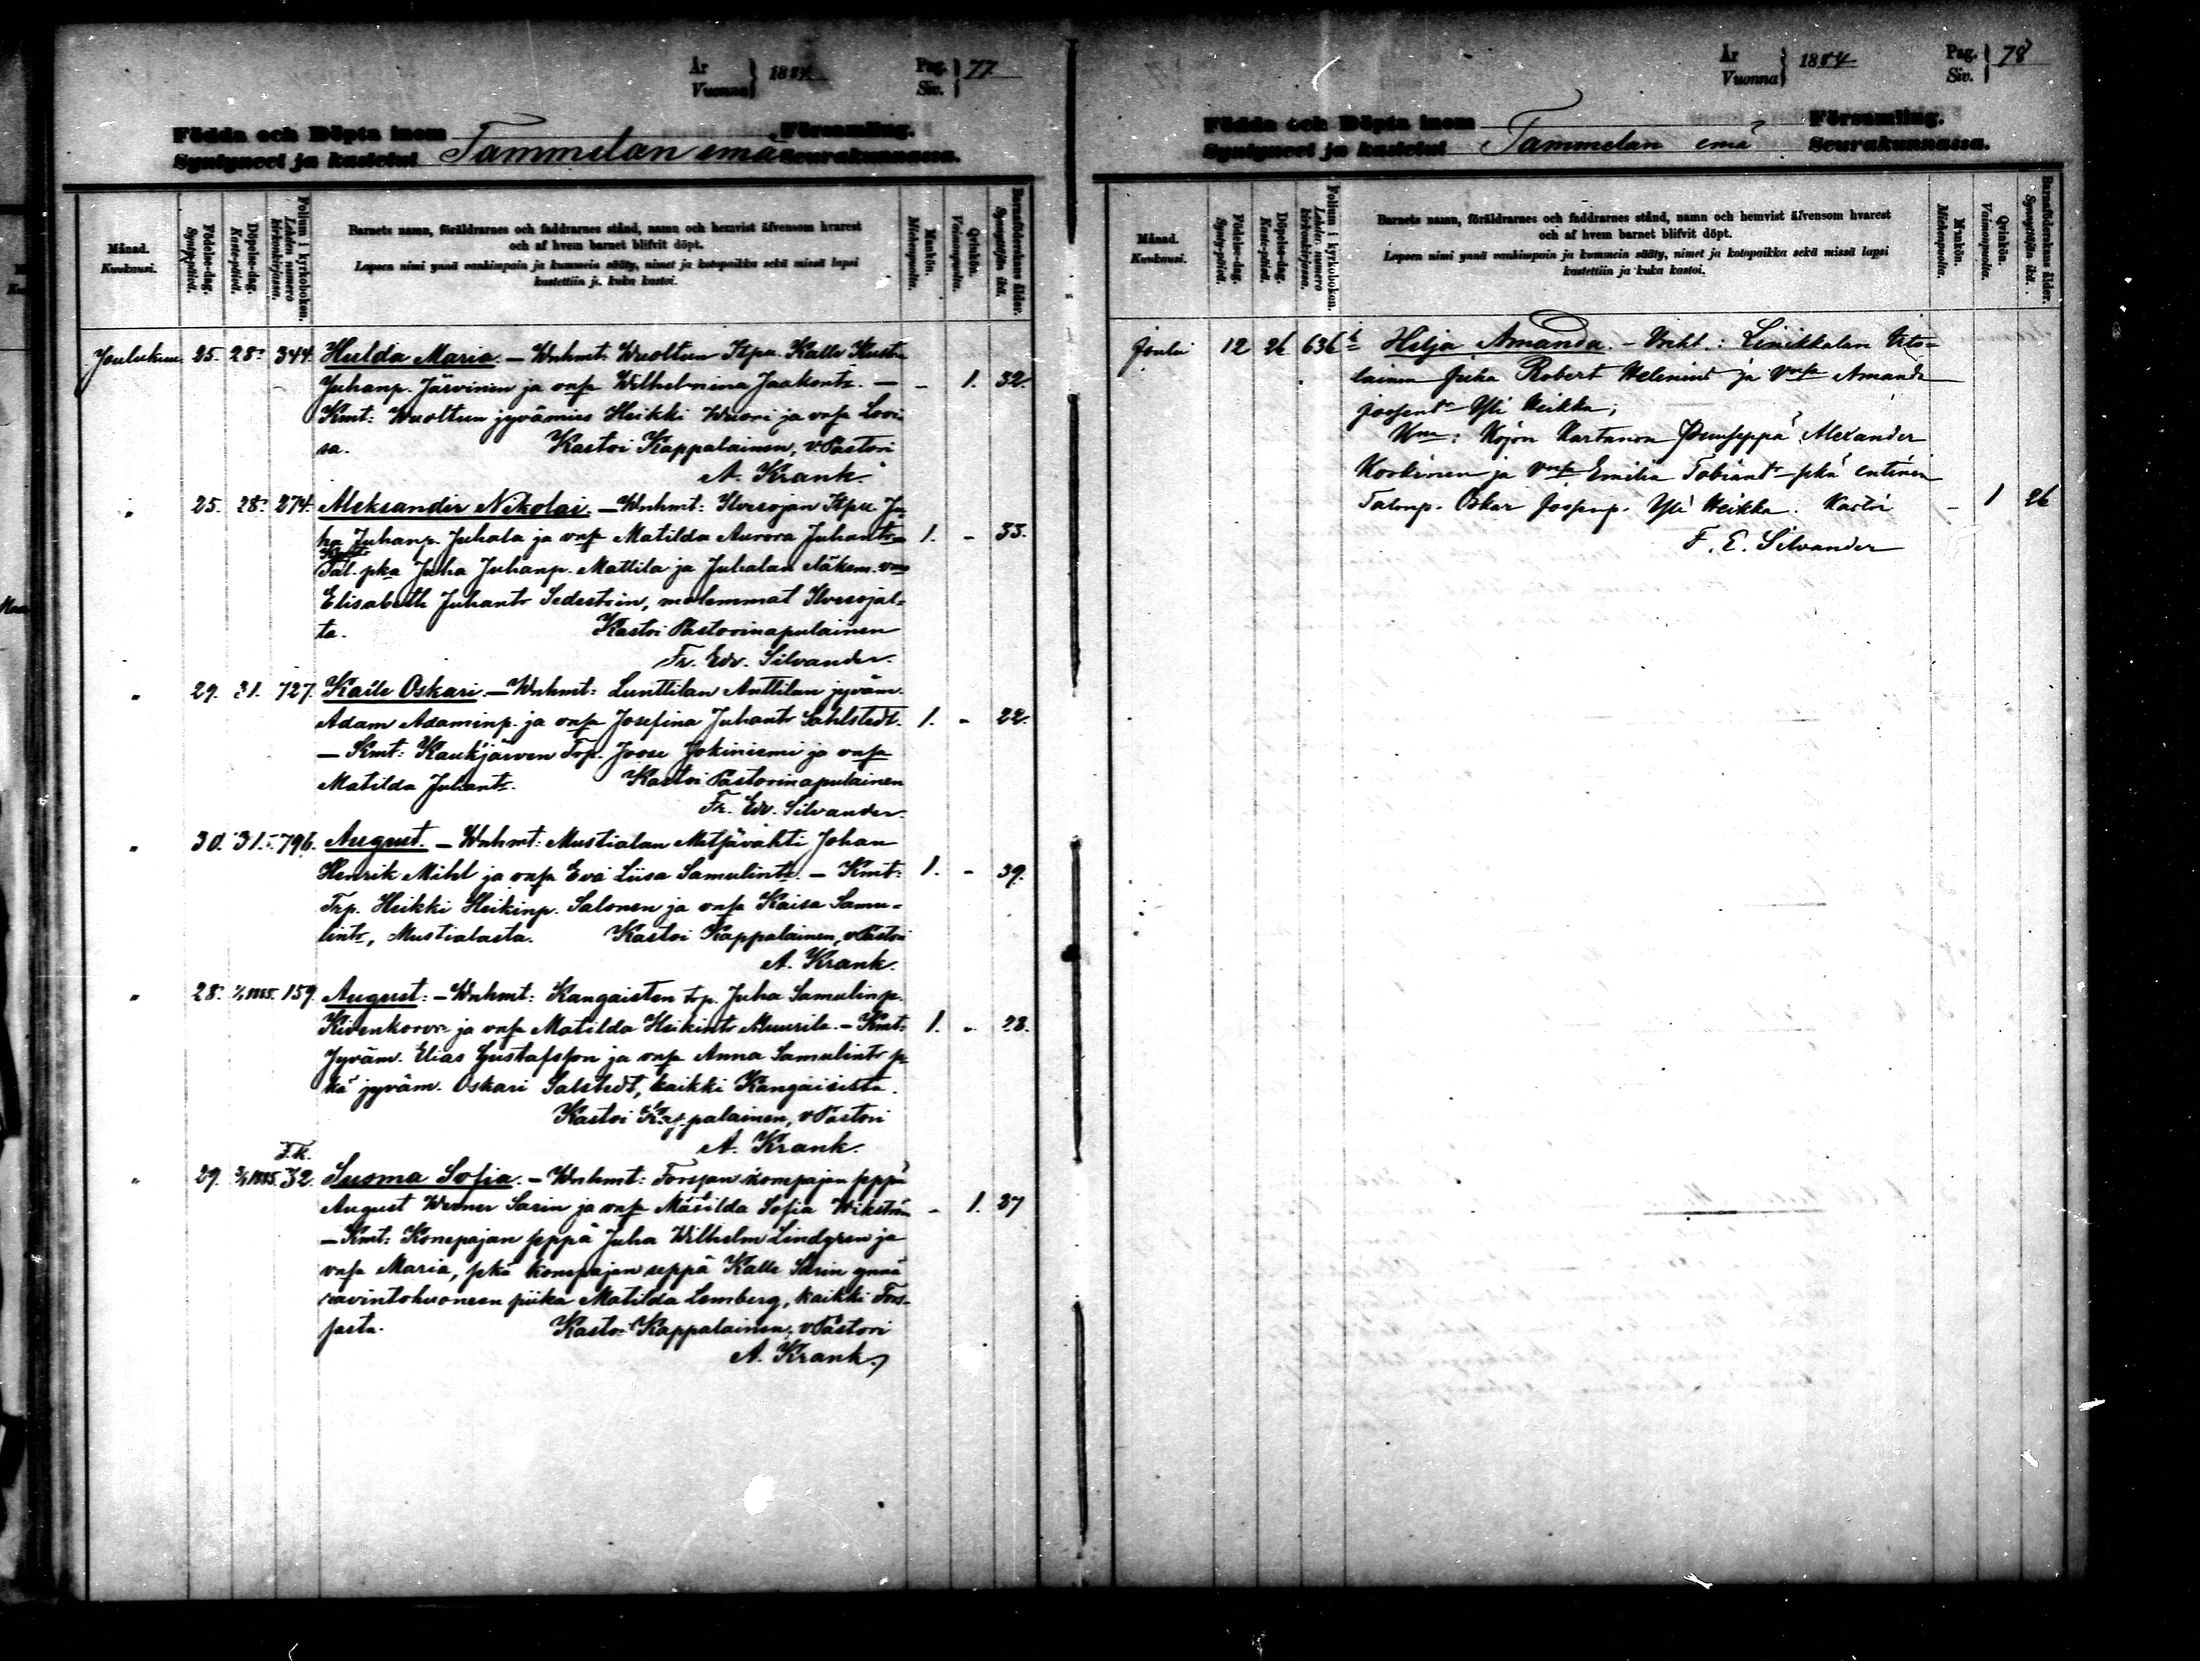 År
Vuonna } 1884
Pag.
Siv. } 77
Födda och Döpta inom
Syntyneet ja kastetut Tammelan emä
Församling.
Seurakunnassa.
Månad.
Kuukausi.
Födelse-dag.
Synty-päivä.
Döpelse-dag.
Kaste-päivä.
Folium i kyrkoboken.
Lehden numero kirkonkirjassa.
Barnets namn, föräldrarnes och faddrarnes stånd, namn och hemvist äfvensom hvarest
och af hvem barnet blifvit döpt.
Lapsen nimi ynnä vanhimpain ja kummein sääty, nimet ja kotopaikka sekä missä lapsi
kastettiin ja kuka kastoi.
Mankön.
Miehenpuolia.
Qvinkön.
Vaimonpuolia.
Barnaföderskans ålder.
Synnyttäjän ikä.
Joulukuu. 25. 28. 344. Hulda Maria. – Wnhmt: Wuoltun Itpn. Kalle Kusta
Juhanp. Järvinen ja vaση Wilhelmina Jaakontr. – - 1. 32.
Kmt: Wuoltun jyvämies Heikki Wuori ja vmsa Lovi-
sa. Kastoi Kappalainen, v. Pastori
A. Krank.
" 25. 28. 274. Aleksander Nikolai. – Wnhmt: Ilvesojan Itpn. Ju-
ha Juhanp. Juhala ja vmsa Matilda Aurora Juhantr 1. - 33.
Kmt:
Tal. pka Juha Juhanp. Mattila ja Juhalan eläkem. vmo
Elisabeth Juhantr Sedestein, molemmat Ilvesojal-
ta. Kastoi Pastorinapulainen
Fr. Edv. Silvander.
" 29. 31. 727. Kalle Oskari. – Wnhmt: Lunttilan Anttilan jyväm.
Adam Adaminp. ja vmsa Josefina Juhantr Sahlstedt. 1. - 22.
– Kmt: Kaukjärven Trp. Joose Jokiniemi ja vmsa
Matilda Juhantr. Kastoi Pastorinapulainen
Fr. Edv. Silvander.
" 30. 31. 796. August. – Wnhmt: Mustialan Metsävahti Johan
Henrik Mihl ja vmsa Eva Liisa Samulintr. – Kmt: 1. - 39.
Trp. Heikki Heikinp. Salonen ja vmsa Kaisa Samu-
lintr, Mustialasta. Kastoi Kappalainen, v Pastori
A. Krank.
" 28. 1/1 1885. 159. August: – Wnhmt: Kangaisten trp. Juha Samulinp.
Kivenkorva ja vmsa Matilda Heikintr Muurila. – Kmt: 1. - 28.
Jyväm. Elias Gustafsson ja vmsa Anna Samulintr se-
kä jyväm. Oskari Salstedt, kaikki Kangaisista.
Kastoi Kappalainen, v Pastori
A. Krank.
F.k.
" 29. 1885. 32. Suoma Sofia. – Wnhmt: Forssan konepajan seppä
August Werner Sarin ja vmsa Matilda Sofia Wikström - 1. 27
– Kmt: Konepajan seppä Juha Wilhelm Lindgren ja
vmsa Maria, sekä konepajan seppä Kalle Sarin ynnä
ravintohuoneen piika Matilda Lemberg, kaikki Fors-
sasta. Kastoi Kappalainen, v Pastori
A. Krank.
År
Vuonna } 1884
Pag.
Siv. } 78
Födda och Döpta inom
Syntyneet ja kastetut Tammelan emä
Församling.
Seurakunnassa.
Månad.
Kuukausi.
Födelse-dag.
Synty-päivä.
Döpelse-dag.
Kaste-päivä.
Folium i kyrkoboken.
Lehden numero kirkonkirjassa.
Barnets namn, föräldrarnes och faddrarnes stånd, namn och hemvist äfvensom hvarest
och af hvem barnet blifvit döpt.
Lapsen nimi ynnä vanhimpain ja kummein sääty, nimet ja kotopaikka sekä missä lapsi
kastettiin ja kuka kastoi.
Mankön.
Miehenpuolia.
Qvinkön.
Vaimonpuolia.
Barnaföderskans ålder.
Synnyttäjän ikä.
Joulu 12 26 636 Hilja Amanda. – Vnht.: Liesikkalan Itto-
lainen Juha Robert Helenius ja Vmsa Amanda
Joosentr Yli Heikka;
Kmt: Kojon Kartanon Puuseppä Alexander
Koskinen ja Vmsa Emilia Tobiantr sekä entinen
Talonp. Oskar Joosenp. Yli Heikka. Kastoi - 1 26
F. E. Silvander